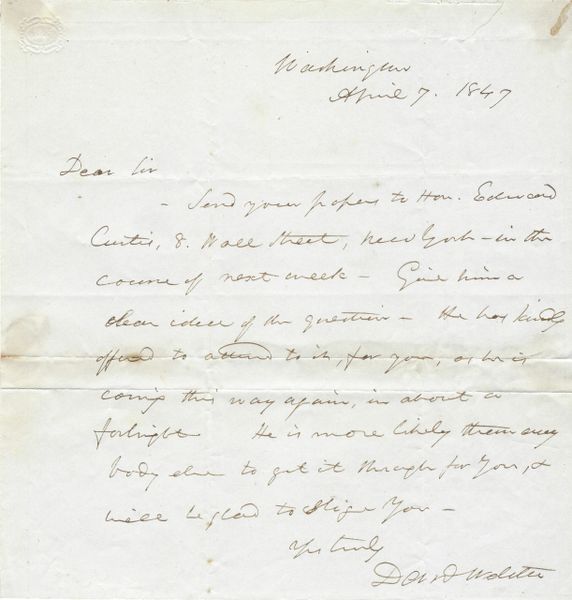 Washington
April 7. 1847
Dear Sir
- Send your papers to Hon. Edward
Curtis, 8. Wall Street, New York - in the
course of next week - Give him a
clear idea of the question - He has kindly
offered to attend to it, for you, as he is
coming this way again, in about a
fortnight He is more likely than any
body else to get it through for you, &
will be glad to oblige you -
Yrs truly
Danl Webster